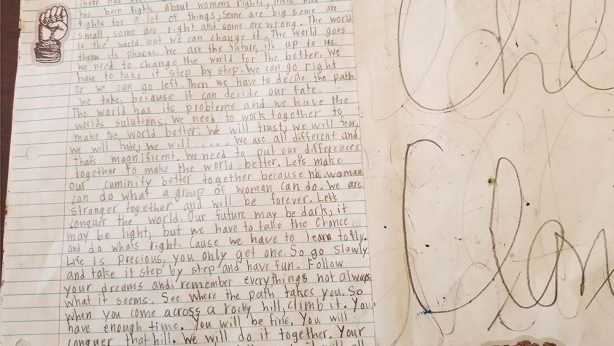 has been fights about womens rights,
fights for a lot of things, some are big some are
small, some are right and some are wrong. The world
is the world but we can change it, The world goes
threw it phaces. We are the future, its up to us.
We need to change the world for the better. We
have to take it step by step. We can go right
or we can go left. Then we have to decide the path
we take, because it can decide our fate.
The world has its problems and we have the
worlds solutions. We need to work together to
make the world better. We will trust, we will fear,
we will hate, we will ..... We are all different and
thats magnificent. We need to put our differences
together to make the world better. Let's make
our cuminity better together because no woman
can do what a group of woman can do. We are
stronger together and will be forever. Let's
conquer the world. Our future may be dark, it
may be light, but we have to take the chance
and do whats right. Cause we have to learn to fly.
Life is precious, you only get one. So go slowly
and take it step by step and have fun. Follow
your dreams and remember everythings not always
what it seems. See where the path takes you. So
when you come across a rocky hill, climb it. You
have enough time. You will be fine. You will
conquer that hill. We will do it together. Your